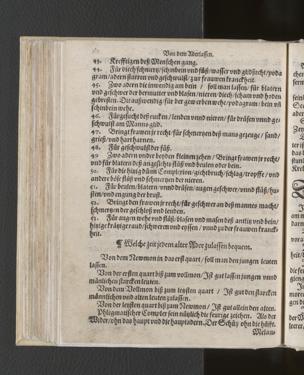 Von dem Aderlassen.
43. Krefftigen deß Menschen gang.
44. Für diech schmertz/schinbein und füß/wasser und glidsucht/poda
gram/adern starren und geschwulst/zur frauwen kranckheit.
45. Zwo adern die inwendig am bein / soll man lassen / für blatern
und geschwer der bermutter und blasen/nieren/diech/scham und hoden
gebresten. Die außwendig/für der gewerben wehe/podagram/bein uñ
schinbein wehe.
46. Für gesucht deß rucken/lenden unnd nieren/für drüsen unnd ge-
schwulst am Mannsglid.
47. Bringt frawen jr recht/für schmertzen deß mans gezeuge/sand/
grieß/und hartharnen.
48. Für geschwulst der füß.
49. Zwo adern under beyden kleinen zehen / Bringt frawen jr recht/
und für blatern deß angesichts/stüß und beulen oder bein.
60. Für die hinig dünn Complexion/gichtbruch/schlag/tropffe/und
andere böse süß und schmertzen der nieren.
61. Für beulen/blatern/unnd drüsen/augen geschwer/unnd süß/hu-
sten/und engung der brust.
62. Bringt den frawen jr recht/für geschwer an deß mannes macht/
schmertzen der geschleß und lenden.
63. Für augen wehe und süß/blasen und masen deß antlitz und bein/
hinige krätzige raud/schwerren und eyssen / unnd zu der frauwen krанck-
heit.
¶ Welche zeit jedem alter Ader zulassen bequem.
Von dem Newmon in das erst quart/soll man den jungen leuten
lassen.
Von der ersten quart biß zum vollmon/Ist gut lassen jungen unnd
männlichen starcken leuten.
Von dem Vollmon biß zum letsten quart / Ist gut den starcken
männlichen und alten leuten zulassen.
Von der letsten quart biß zum Newmon/Ist gut allein den alten.
Phlegmatischer Complex sein nützlich die feurige zeichen. Als der
Wider/ohn das haupt und die hauptadern. Der Schütz ohn die hüfft.
Melan-